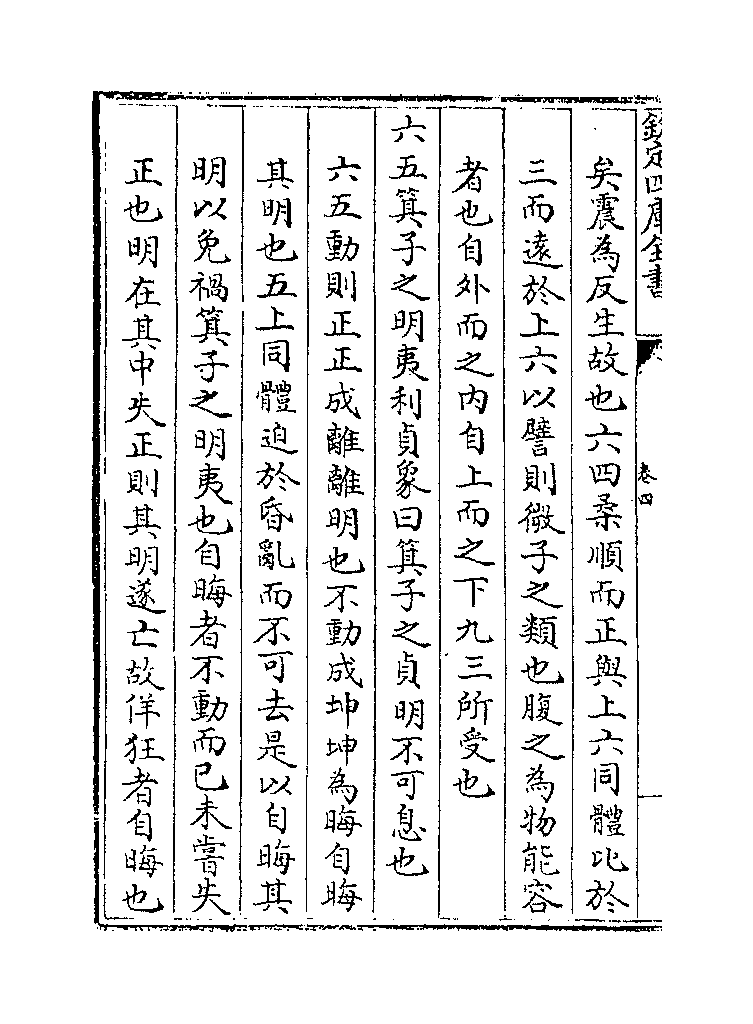 欽定四庫全書
卷四
矣震為反生故也六四柔順而正與上六同體比於
三而遠於上六以譬則微子之類也腹之為物能容
者也自外而之内自上而之下九三所受也
六五箕子之明夷利貞象曰箕子之貞明不可息也
六五動則正正成離離明也不動成坤坤為晦自晦
其明也五上同體迫於昏亂而不可去是以自晦其
明以免禍箕子之明夷也自晦者不動而已未嘗失
正也明在其中失正則其明遂亡故佯狂者自晦也